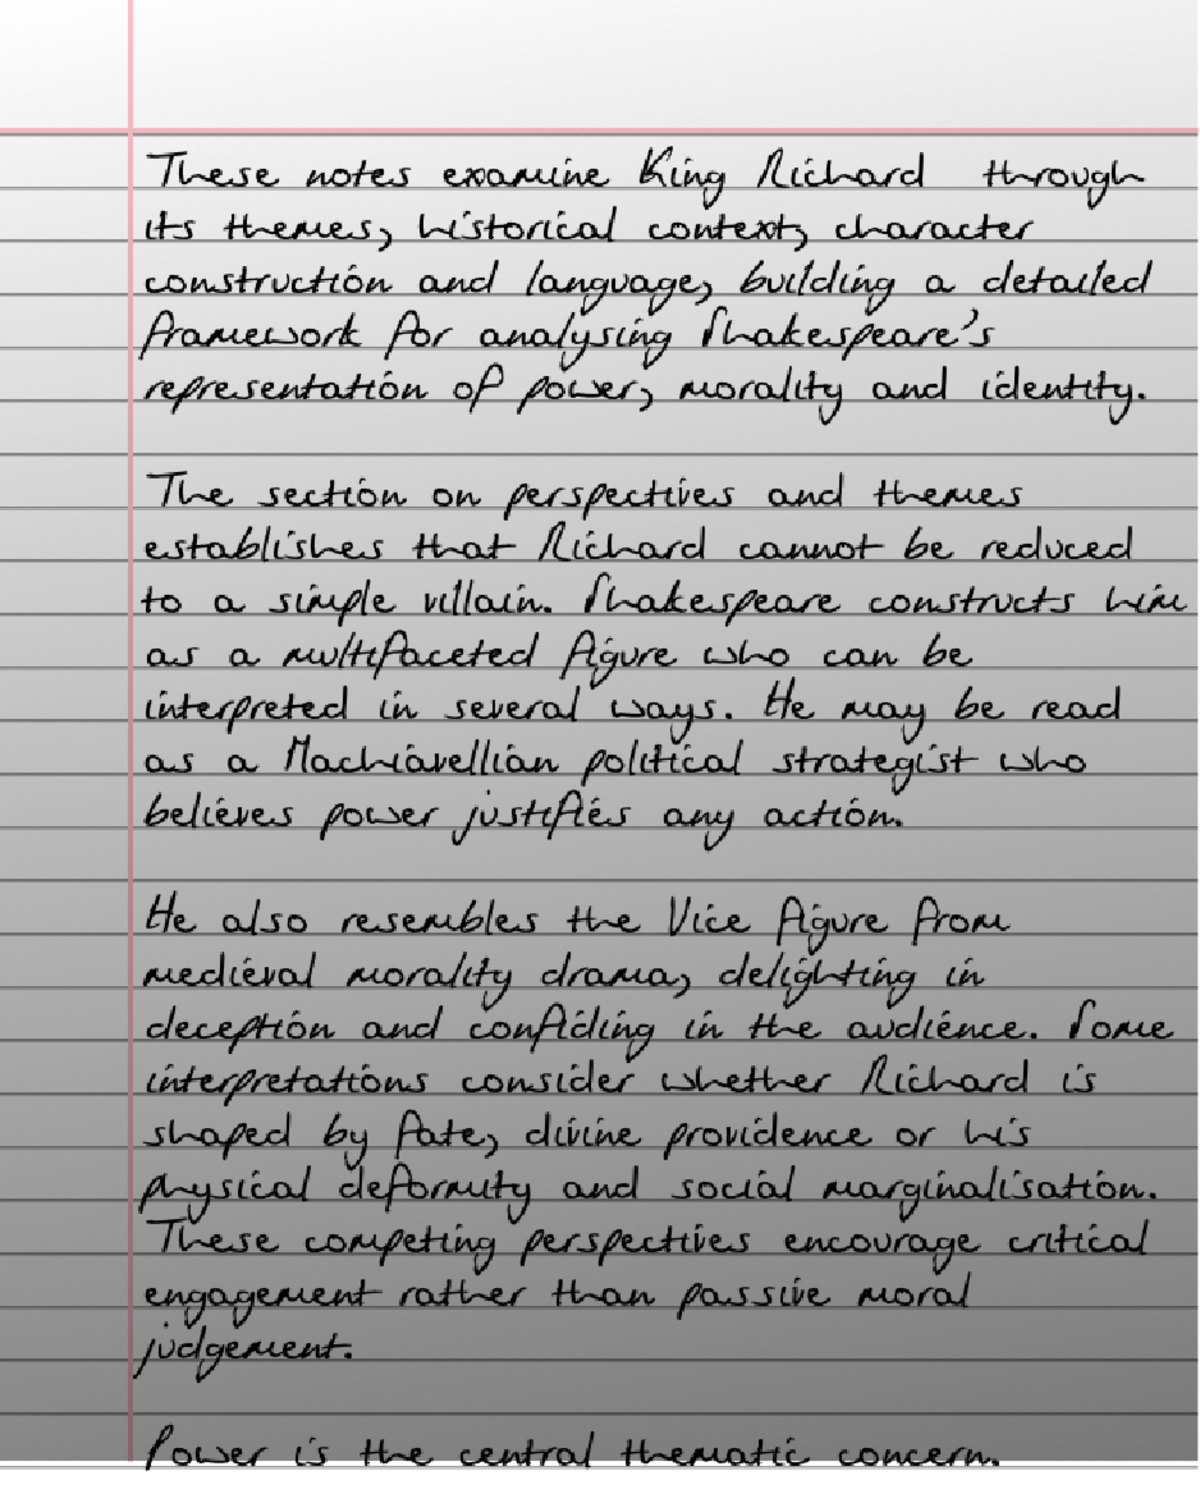 These notes examine King Richard through
its themes, historical context, character
construction and language, building a detailed
framework for analysing Shakespeare's
representation of power, morality and identity.
The section on perspectives and themes
establishes that Richard cannot be reduced
to a simple villain. Shakespeare constructs him
as a multifaceted figure who can be
interpreted in several ways. He may be read
as a Machiavellian political strategist who
believes power justifies any action.
He also resembles the Vice figure from
medieval morality drama, delighting in
deception and confiding in the audience. Some
interpretations consider whether Richard is
shaped by fate, divine providence or his
physical deformity and social marginalisation.
These competing perspectives encourage critical
engagement rather than passive moral
judgement.
Power is the central thematic concern.